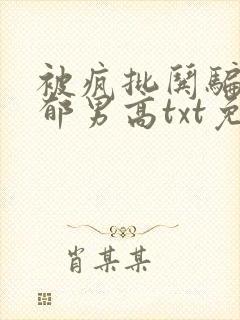 被疯批闺骗
郁男高txt免
肖某某